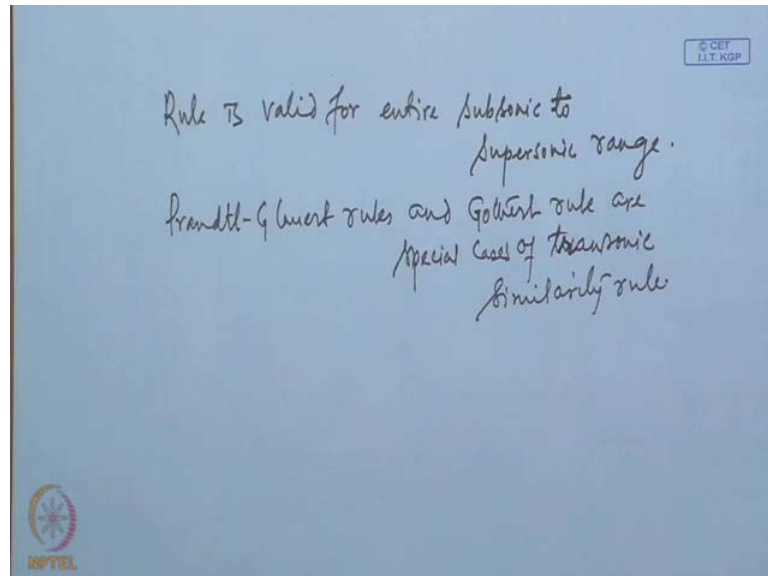 © CET
I.I.T. KGP
Rule is valid for entire subsonic to
supersonic range.
Prandtl-Glauert rules and Gothert rule are
special cases of transonic
similarity rule.
NPTEL